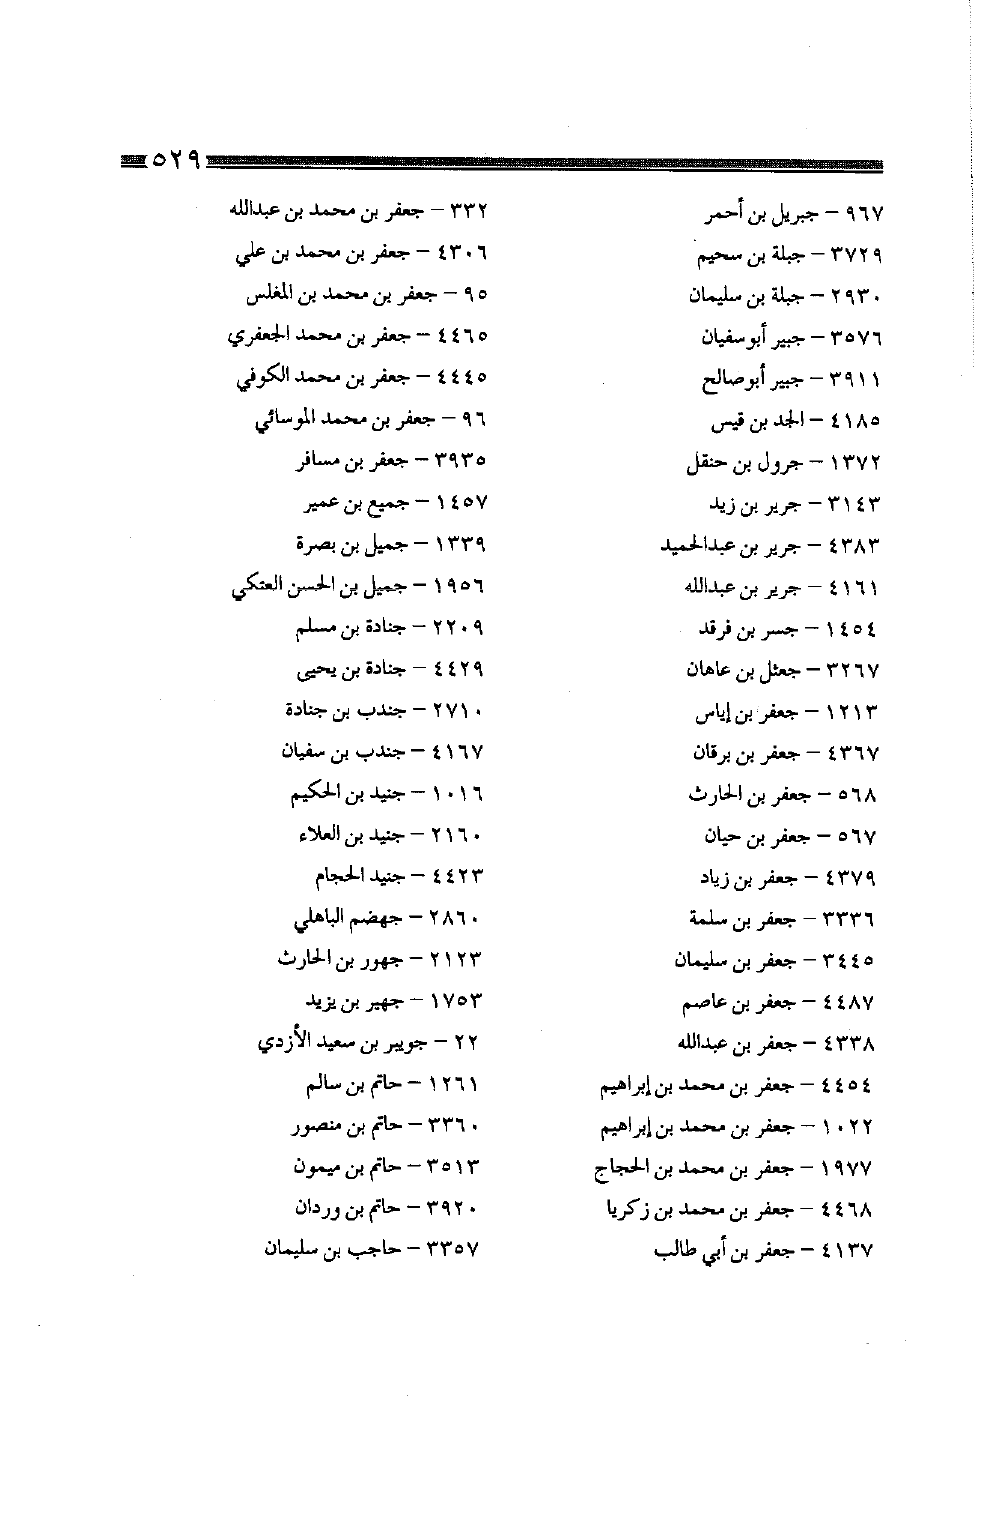 ٥٢٩
٩٦٧ – جبريل بن أحمر
٣٧٢٩ – جبلة بن سحيم
٢٩٣٠ – جبلة بن سليمان
٣٥٧٦ – جبير أبوسفيان
٣٩١١ – جبير أبوصالح
٤١٨٥ – الجد بن قيس
١٣٧٢ – جرول بن حنقل
٣١٤٣ – جرير بن زيد
٤٣٨٣ – جرير بن عبدالحميد
٤١٦١ – جرير بن عبدالله
١٤٥٤ – جسر بن فرقد
٣٢٦٧ – جعثل بن عاهان
١٢١٣ – جعفر بن إياس
٤٣٦٧ – جعفر بن برقان
٥٦٨ – جعفر بن الحارث
٥٦٧ – جعفر بن حيان
٤٣٧٩ – جعفر بن زياد
٣٣٣٦ – جعفر بن سلمة
٣٤٤٥ – جعفر بن سليمان
٤٤٨٧ – جعفر بن عاصم
٤٣٣٨ – جعفر بن عبدالله
٤٤٥٤ – جعفر بن محمد بن إبراهيم
١٠٢٢ – جعفر بن محمد بن إبراهيم
١٩٧٧ – جعفر بن محمد بن الحجاج
٤٤٦٨ – جعفر بن محمد بن زكريا
٤١٣٧ – جعفر بن أبي طالب
٣٣٢ – جعفر بن محمد بن عبدالله
٤٣٠٦ – جعفر بن محمد بن علي
٩٥ – جعفر بن محمد بن المغلس
٤٤٦٥ – جعفر بن محمد الجعفري
٤٤٤٥ – جعفر بن محمد الكوفي
٩٦ – جعفر بن محمد الموسائي
٣٩٣٥ – جعفر بن مسافر
١٤٥٧ – جميع بن عمير
١٣٣٩ – جميل بن بصرة
١٩٥٦ – جميل بن الحسن العتكي
٢٢٠٩ – جنادة بن مسلم
٤٤٢٩ – جنادة بن يحيى
٢٧١٠ – جندب بن جنادة
٤١٦٧ – جندب بن سفيان
١٠١٦ – جنيد بن الحكيم
٢١٦٠ – جنيد بن العلاء
٤٤٢٣ – جنيد الحجام
٢٨٦٠ – جهضم الباهلي
٢١٢٣ – جهور بن الحارث
١٧٥٣ – جهير بن يزيد
٢٢ – جويبر بن سعيد الأزدي
١٢٦١ – حاتم بن سالم
٣٣٦٠ – حاتم بن منصور
٣٥١٣ – حاتم بن ميمون
٣٩٢٠ – حاتم بن وردان
٣٣٥٧ – حاجب بن سليمان